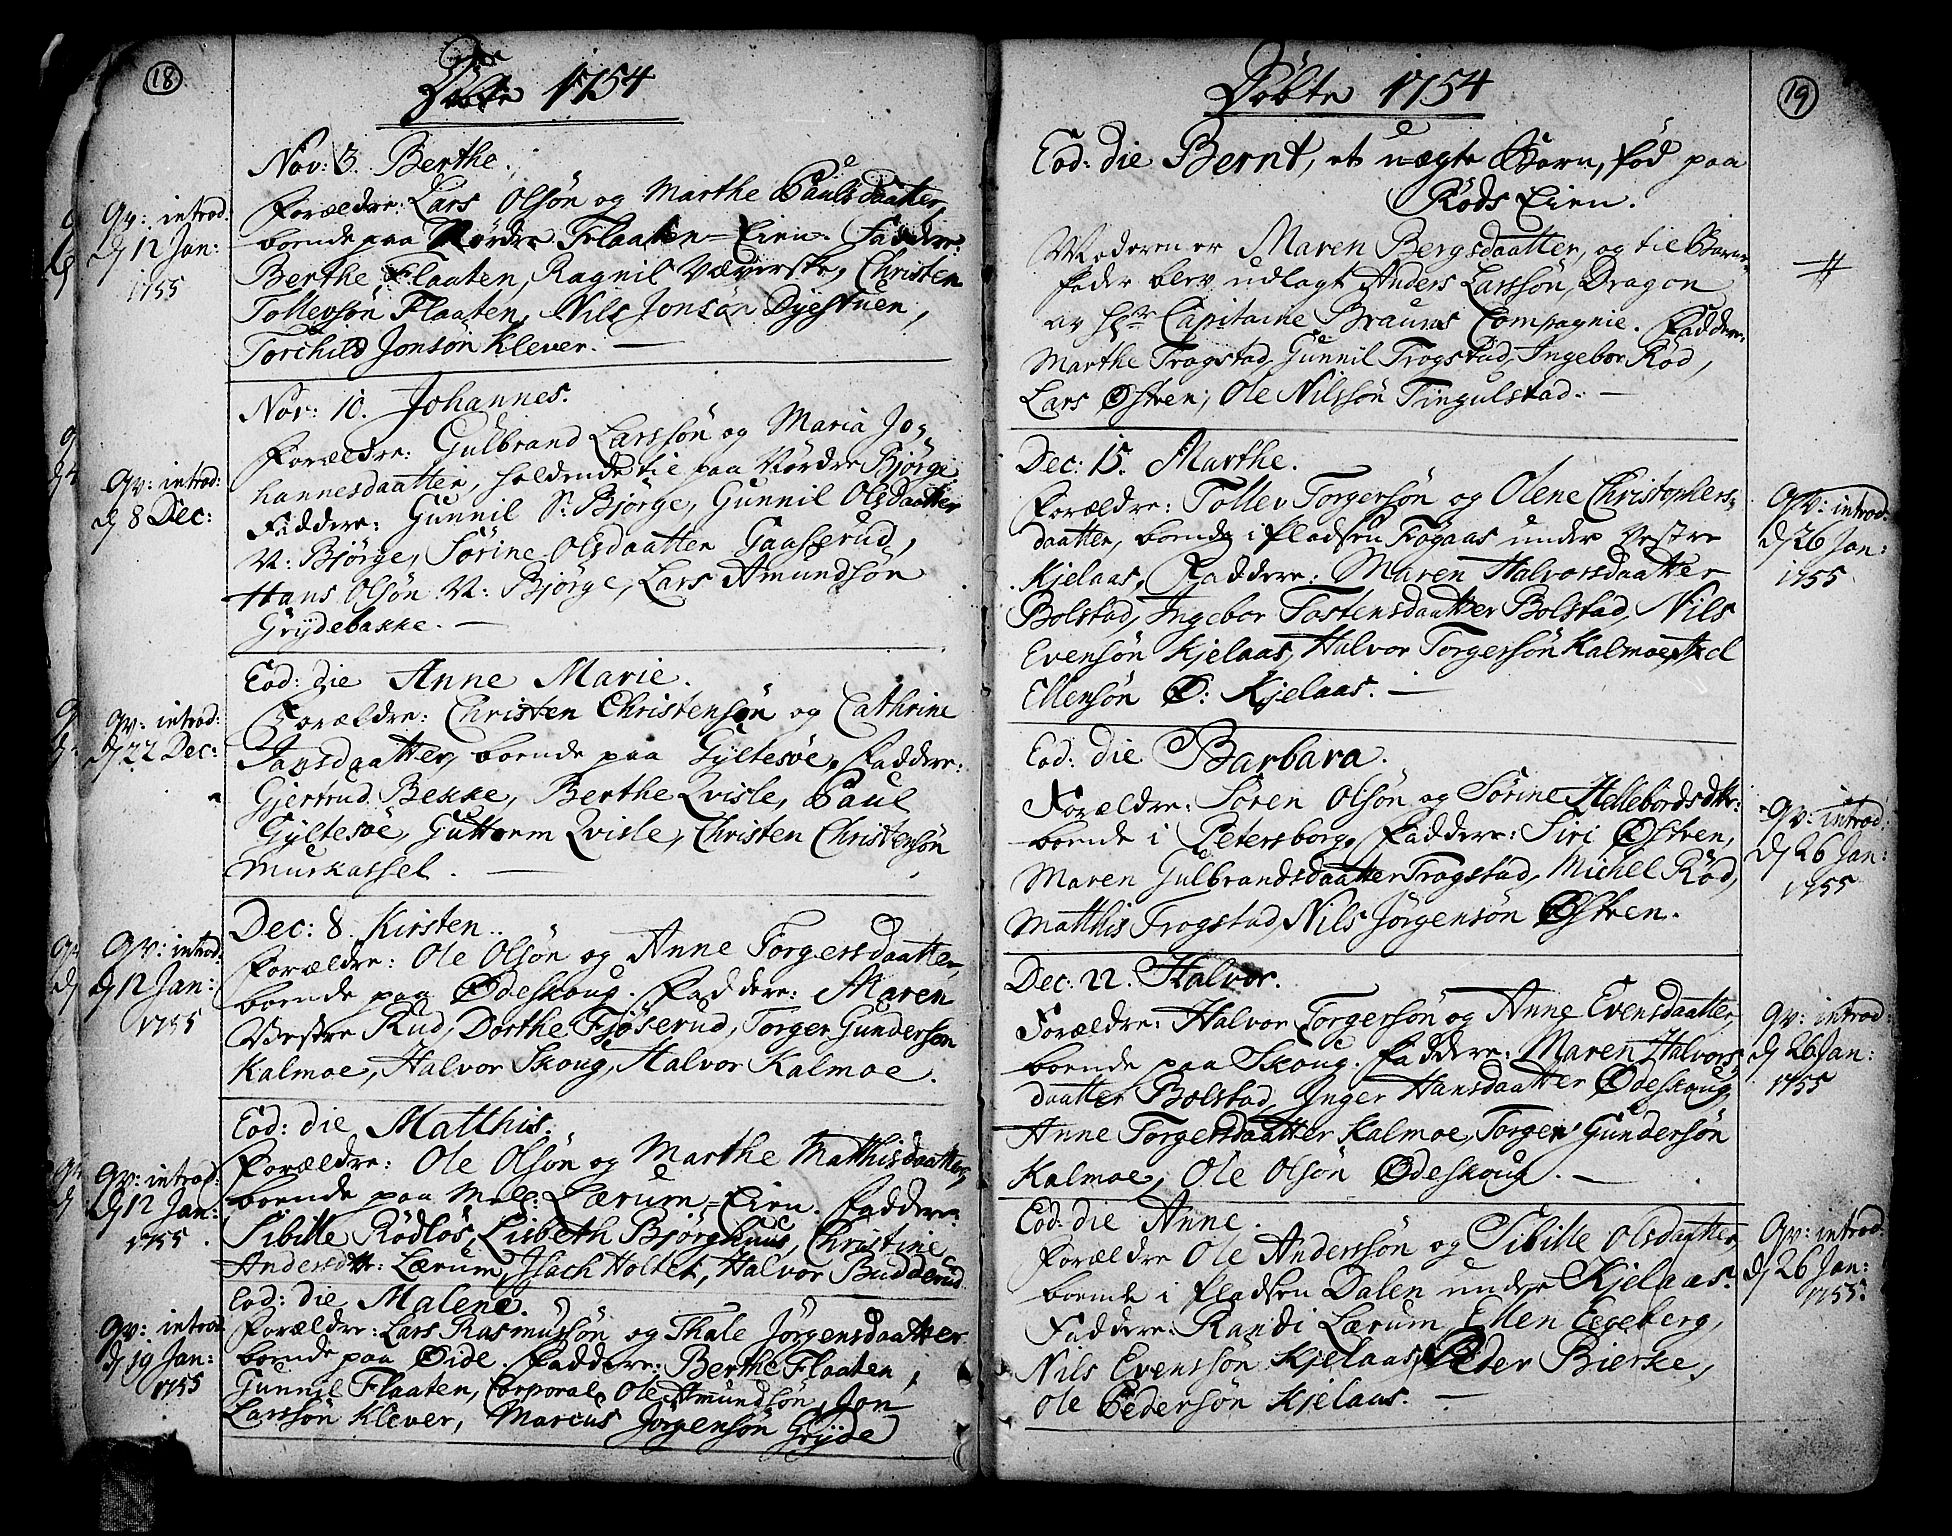 18
Döbte 1754
Nov: 3. Berthe.
Qv: introd.
d 12 Jan:
1755
Forældre: Lars Olsön og Marthe Paulsdaatter,
boende paa Nördre Flaaten-Eien. Faddere:
Berthe Flaaten, Ragnil Væverske, Christen
Tollevsön Flaaten, Nils Jonsön Dyestuen,
Torchild Jonsön Klever. —
Nov: 10. Johannes.
Qv: introd:
d 8 Dec:
Forældre: Gulbrand Larssön og Maria Jo-
hannesdaatter, holdende til paa Nördre Björge
Faddere: Gunnil S: Björge, Gunnil Olsdaatter
N: Björge, Sörine Olsdaatter Gaasserud,
Hans Olsön N: Björge, Lars Amundsön
Grydebakke. —
Eod: die Anne Marie.
Qv: introd:
d 22 Dec:
Forældre: Christen Christensön og Cathrine
Jansdaatter, boende paa Gyltesöe, Faddere:
Gjertrud Bekke, Berthe Qvisle, Paul
Gyltesöe, Guttorm Qvisle, Christen Christensön
Murkassel. —
Dec: 8. Kirsten.
Qv: introd.
d 12 Jan:
1755
Forældre: Ole Olsön og Anne Torgersdaatter,
boende paa Ödeskoug. Faddere: Maren
Vestre Rud, Dorthe Fjöserud, Torger Gundersön
Kalmoe, Halvor Skoug, Halvor Kalmoe.
Eod: die Matthis.
Qv: introd.
d 12 Jan:
1755
Forældre: Ole Olsön og Marthe Matthisdaatter,
boende paa Mell: Lærum-Eien. Faddere:
Sibille Rödlös, Lisbeth Björghuus, Christine
Andersdtr: Lærum, Isach Holter, Halvor Budderud
Eod: die Malene.
Qv: introd
d 19 Jan:
1755
Forældre: Lars Rasmussön og Thale Jörgensdaatter
boende paa Öide. Faddere: Berthe Flaaten,
Gunnil Flaaten, Corporal Ole Amundsön, Jon
Larssön Klever, Marcus Jörgensön Gryde
19
Döbte 1754
Eod: die Bernt, et uægte Barn, föd paa
Röds Eien.
Moderen er Maren Bergsdaatter, og til Barne-
fader blev udlagt Anders Larssön, Dragon
av Hr Capitaine Compagnie. Faddere:
Marthe Trogstad, Gunnil Trogstad, Ingebor Röd,
Lars Östren, Ole Nilssön Tingulstad. —
Dec: 15. Marthe.
Forældre: Tollev Torgersön og Olene Christophers-
daatter, boende i Pladsen Fogaas under Vestre
Kjelaas, Faddere: Maren Halvorsdaatter
Bolstad, Ingebor Tostensdaatter Bolstad, Nils
Evensön Kjelaas, Halvor Torgersön Kalmoe, Axel
Ellensön Ö: Kjelaas. —
Qv: introd:
d 26 Jan:
1755
Eod: die Barbara.
Forældre: Sören Olsön og Sörine Hellebordsdtr:
boende i Petersborg, Faddere: Siri Östren,
Maren Gulbrandsdaatter Trogstad, Michel Röd,
Matthis Trogstad, Nils Jörgensön Östren.
Qv: introd:
d 26 Jan:
1755
Dec: 22. Halvor.
Forældre: Halvor Torgersön og Anne Evensdaatter,
boende paa Skoug. Faddere: Maren Halvors-
daatter Bolstad, Inger Hansdaatter Ödeskoug
Anne Torgersdaatter Kalmoe, Torger Gundersön
Kalmoe, Ole Olsön Ödeskoug. —
Qv: introd:
d 26 Jan:
1755
Eod: die Anne.
Forældre Ole Anderssön og Sibille Olsdaatter,
boende i Pladsen Dalen under Kjelaas.
Faddere: Randi Lærum, Ellen Egeberg,
Nils Evenssön Kjelaas, Peder Bierke,
Ole Pedersön Kjelaas. —
Qv: introd:
d 26 Jan:
1755.